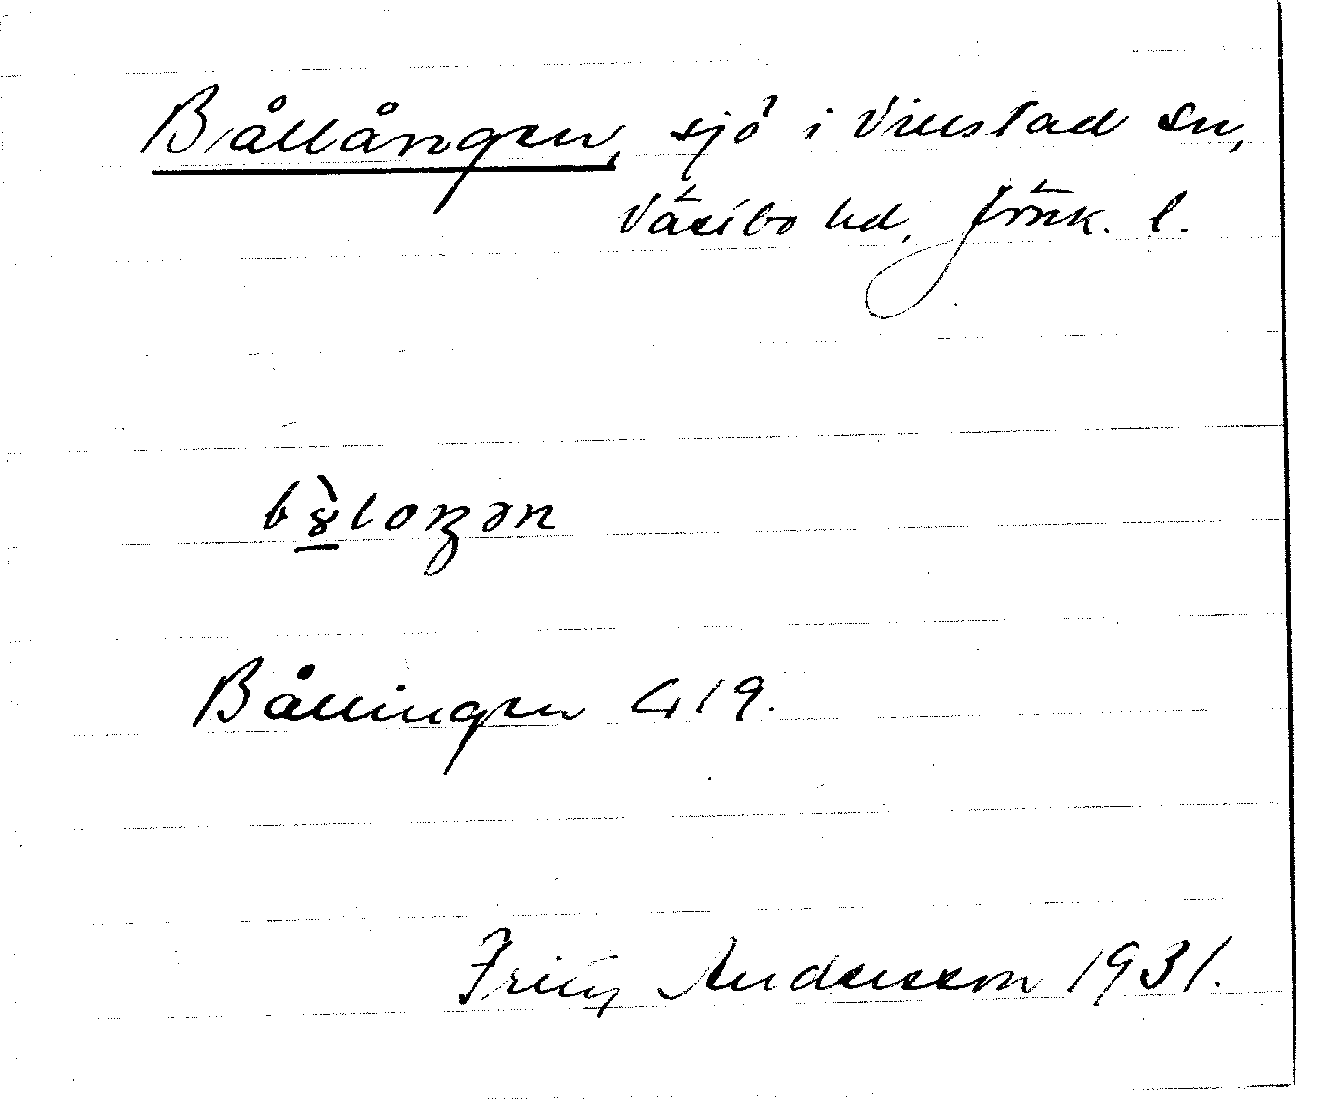 Bållången, sjö i Villstad sn,
Västbo hd, Jönk. l.
Bållingen G 19.
Fritz Andersson 1931.